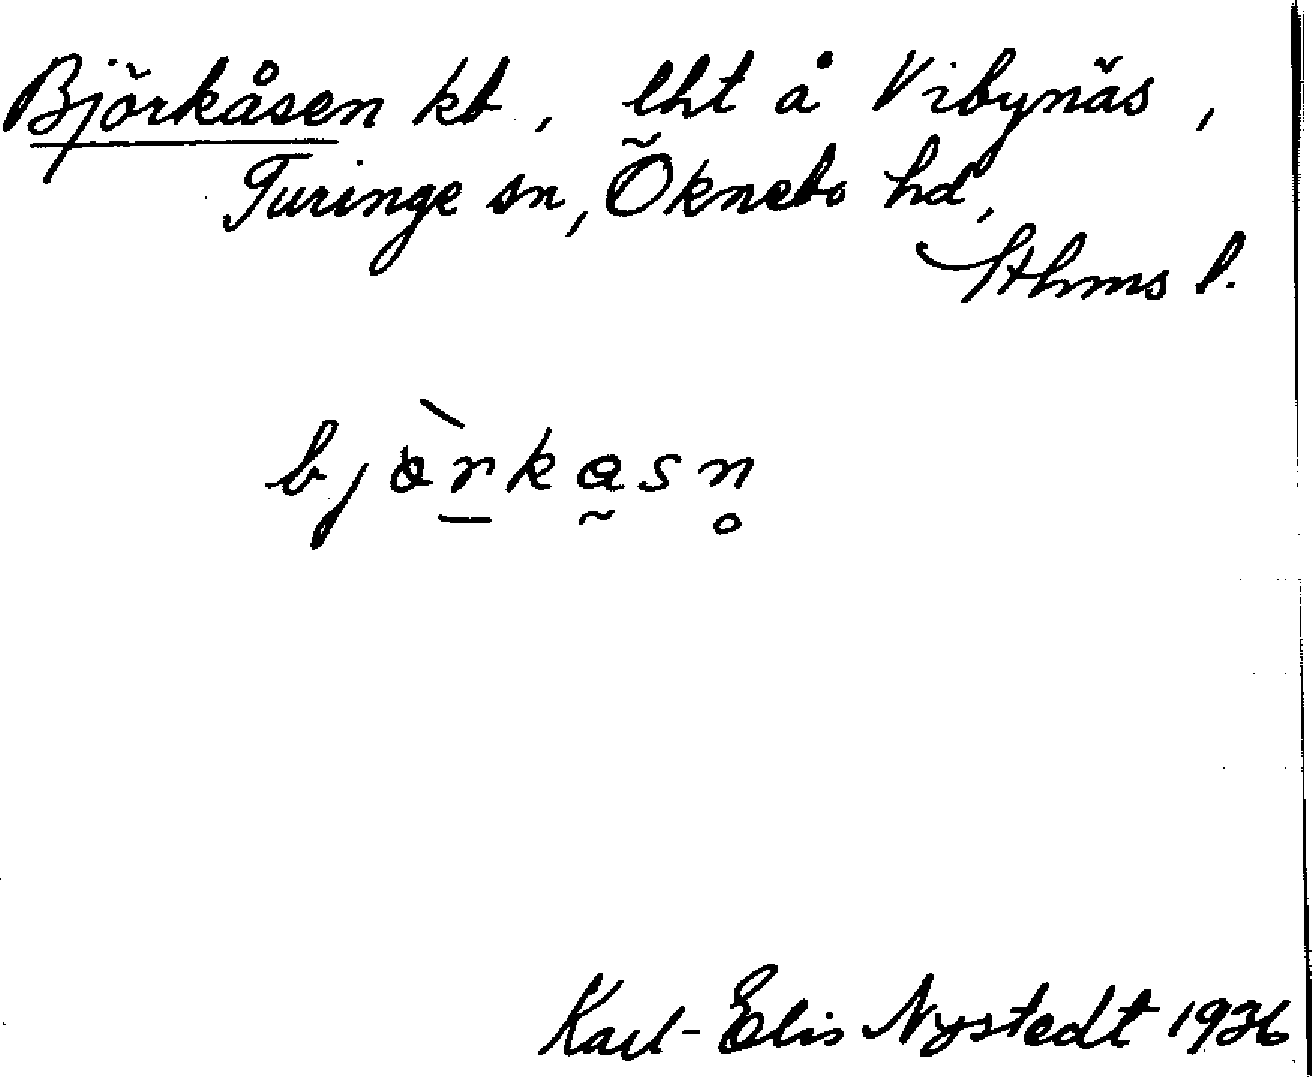 Björkåsen kt, lht å Vibynäs,
Turinge sn, Öknebo hd,
Sthms l.
bjòrkasn
Karl-Elis Nystedt 1936